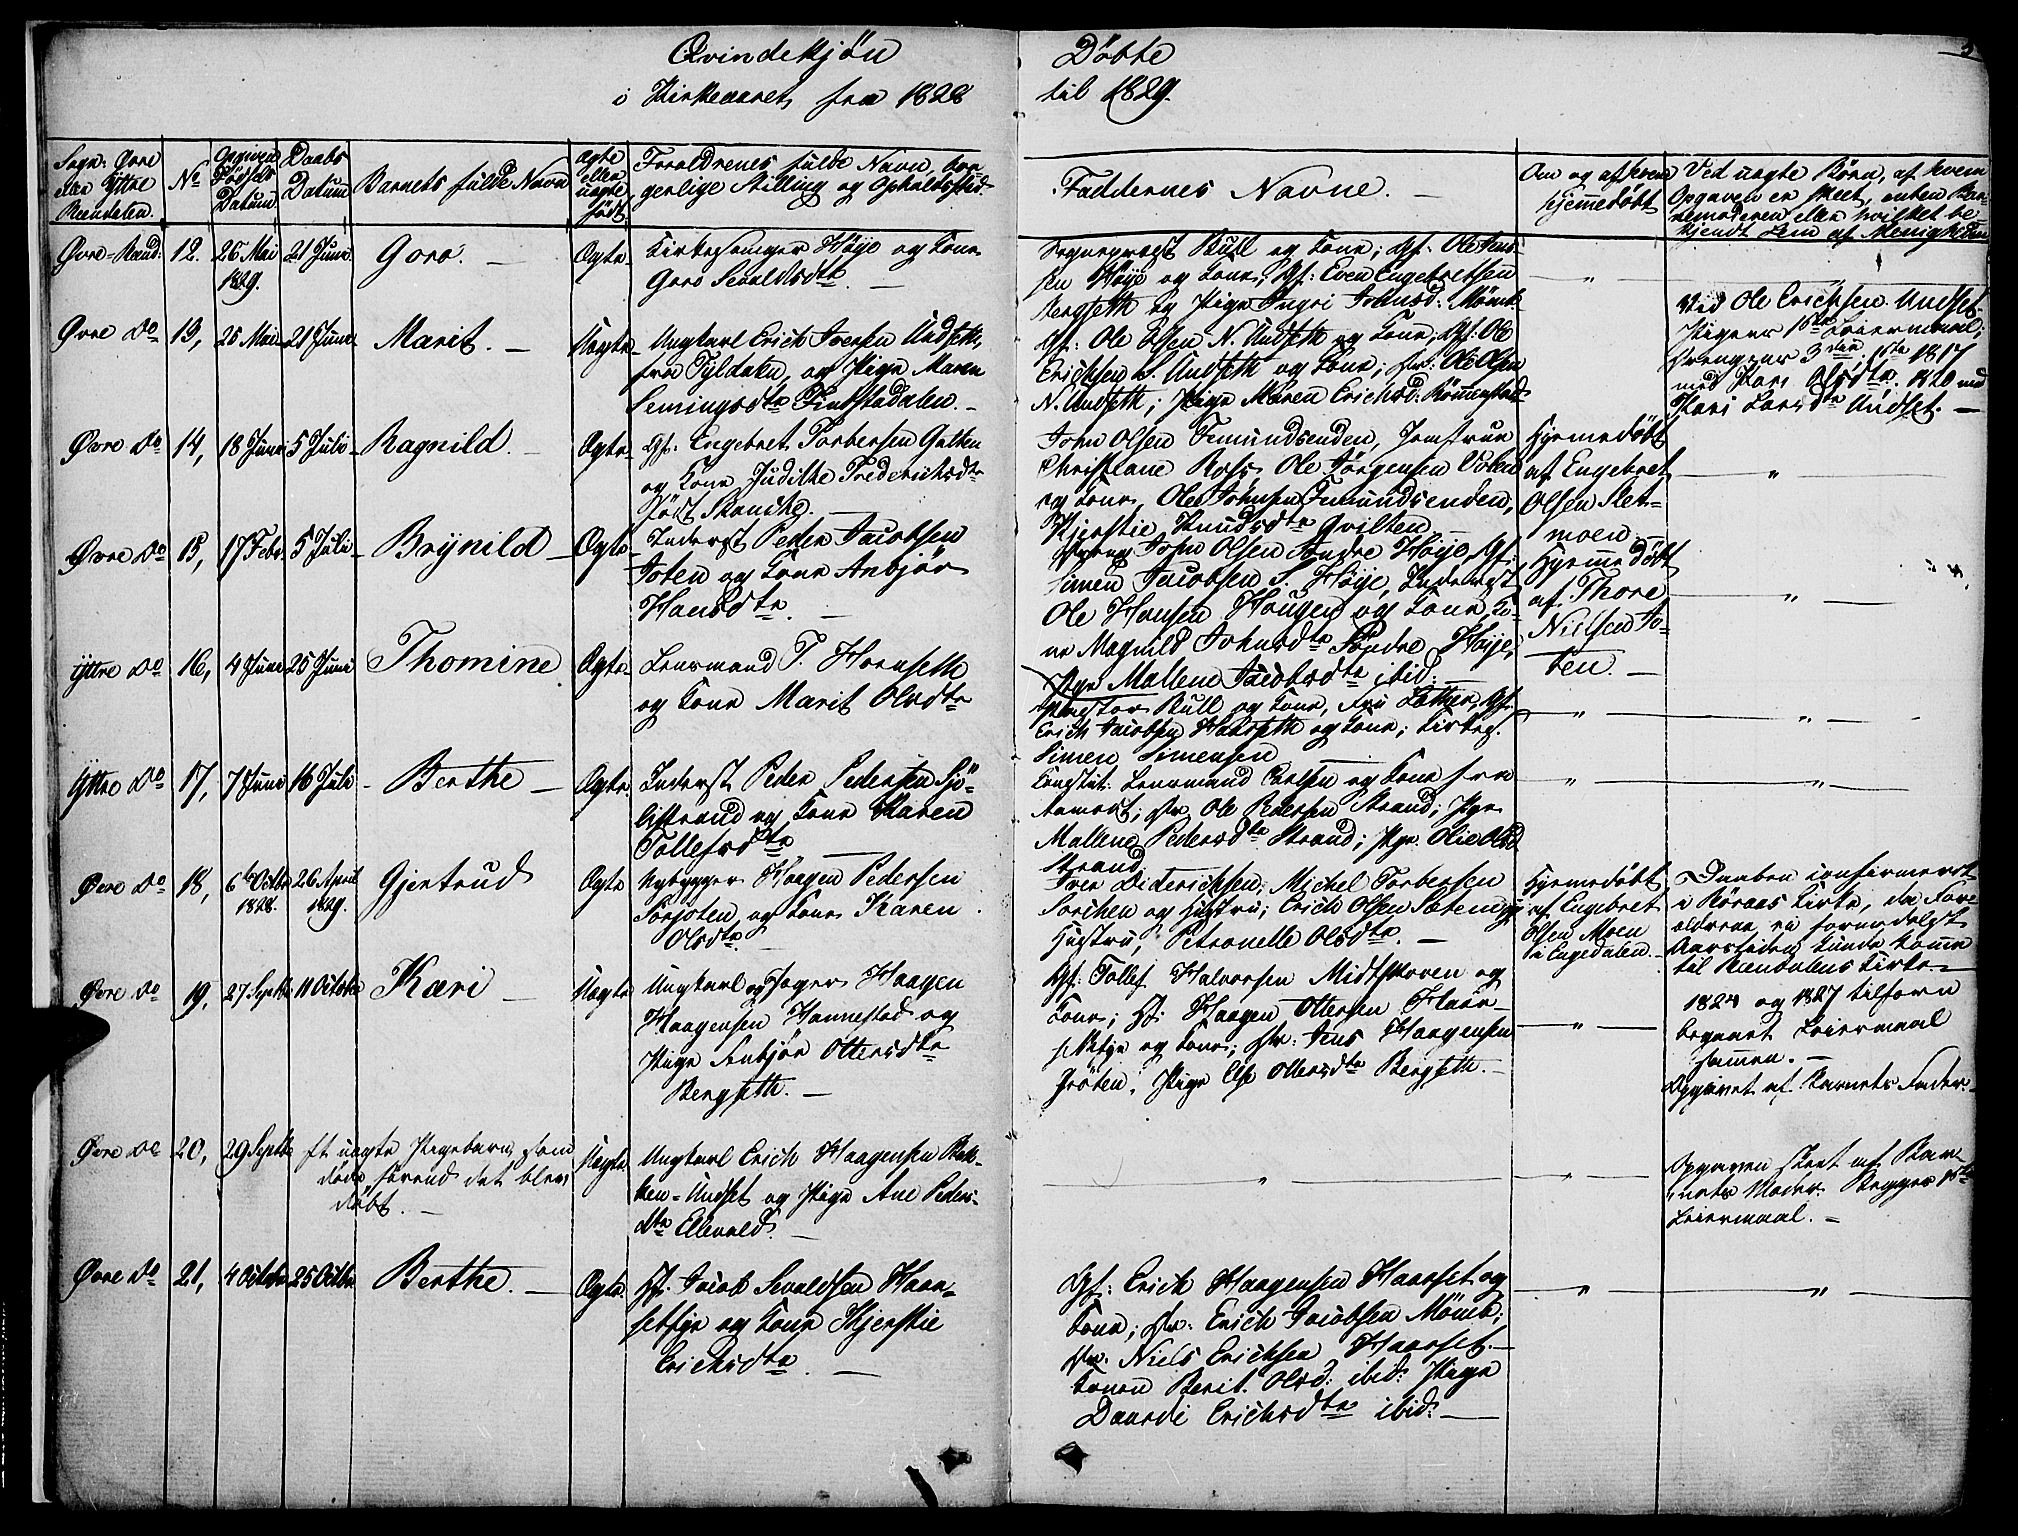 Qvindekjön Döbte
i Kirkeaaret fra 1828 til 1829.
Sogn: Övre eller Yttre Reendalen.
No
Opgiven Födsels Datum
Daabs Datum
Barnets fulde Navn
Ægte eller uægte födt.
Forældrenes fulde Navn, borgerlige Stilling og Opholdssted.
Faddernes Navne. —
Om og af hvem hjemmedöbt
Ved uægte Börn, af hvem Opgaven er skeet, enten Barnemoderen eller hvilket bekjendt Lem af Menigheden
Övre-Rend. 12. 26 Mai 1829. 21 Juni Goro. — Ægte
Kirkesanger Höye og Kone
Goro Sevaldsdtr. —
Sognepræst Bull og Kone; Gf: Ole Jens-
sen Höye og Kone; Gf: Even Engebretsen
Bergseth og Pige Ingri Johnsd: Mömb.
Övre do 13, 25 Mai 21 Juni Marit. — Uægte
Ungkarl Erich Iversen Undseth,
fra Tyldalen, og Pige Maren
Semingsdtr Finstadalen. —
Gf: Ole Olsen N. Undseth og Kone; Gf: Ole
Erichsen S. Undseth og Kone; Dr: Ole Olsen
N. Undseth; Pige Maren Erichsd:
Ved Ole Erichsen Undset.
Pigens 1ste Leiermaal;
Drengens 3die. 1ste 1817
med Kari Olsdtr. 1820 med
Kari Larsdtr Undset. —
Övre do 14, 18 Juni 5 Juli Ragnild. — Ægte
Gf. Engebret Torbersen Galten
og Kone Judithe Frederichsdtr
födt Skancke. —
John Olsen Femundsenden, Jomfrue
Christiane Ross, Ole Jörgensen Volen
og Kone, Ole Johnsen Femundsenden,
Kjerstie Knudsdtr Qvilten —
Hjemmedöbt
af Engebret
Olsen Slet-
moen. —
Övre do 15, 17 Febr. 5 Juli Brynild — Ægte
Inderst Peder Jacobsen
Joten og Kone Anbjör
Hansdtr. —
John Olsen Söndre Höye, Gf:
Simen Jacobsen S. Höye, Inderst
Ole Hansen Haugen og Kone, Ko-
ne Magnild Johnsdtr Söndre Höye,
Pige Mallene Jacobsdtr ibid: —
Hjemmedöbt
af Thore
Nielsen Jo-
ten. —
Yttre do 16, 4 Juni 25 Juni Thomine Ægte
Lensmand T. Hornseth
og Kone Marit Olsdtr
Pastor Bull og Kone, Fru Gf.
Erich Jacobsen og Kone; Kirkes.
Simen Simensen
Yttre do 17, 7 Juni 16 Juli Berthe — Ægte
Inderst Peder Pedersen Sjö-
listrand og Kone Karen
Tollefsdtr
Constit: Lensmand og Kone fra
Aamodt; Dr. Ole Pedersen Strand; Pige
Mallene Pedersdtr Strand; Pige Olie Olsd
Strand
Övre do 18, 6te Octbr 1828. 26 April 1829. Gjertrud Ægte
Nybygger Haagen Pedersen
Sorjoten, og Kone Karen
Olsdtr.
Iver Diderichsen; Michel Torbersen
Sorchen og Hustru; Erich Olsen og
Hustru; Petronelle Olsdtr. —
Hjemmedöbt
af Engebret
Olsen Moen
i Engedalen. —
Daaben confirmeret
i Röraas Kirke, da For-
ældrene, ei formedelst
Aarstiden, kunde komme
til Rendalens Kirke —
Övre do 19, 27 Septbr 11 October Kari — Uægte
Ungkarl og Jæger Haagen
Haagensen Hannestad og
Pige Anbjör Ottersdtr
Bergseth. —
Gf. Tollef Halvorsen Midtskoven og
Kone; Gf: Haagen Ottersen Haar-
og Kone; Dr: Jens Haagensen
Pige Else Ottersdtr Bergseth. —
og 1827 tilforn
begaaet Leiermaal
sammen. —
Opgivet af Barnets Fader. —
Övre do 20, 29 Septbr Et uægte Pigebarn, som
döde, forend det blev
döbt. — Uægte
Ungkarl Erich Haagensen Bak-
ken-Undset og Pige Ane Peders-
dtr Ellevold. —
Opgaven skeet af Bar-
nets Moder. Begges 1ste
Leiermaal. —
Övre do 21, 4 October 25 Octbr Berthe. — Ægte
Gf. Jacob Sevaldsen Haar-
og Kone Kjerstie
Erichsdtr. —
Gf: Erich Haagensen Haarset og
Kone; Dr: Erich Jacobsen Mömb;
Dr. Niels Erichsen Haarset. —
Konen Berit Olsd: ibid: Pige
Daardi Erichsdtr ibid: —